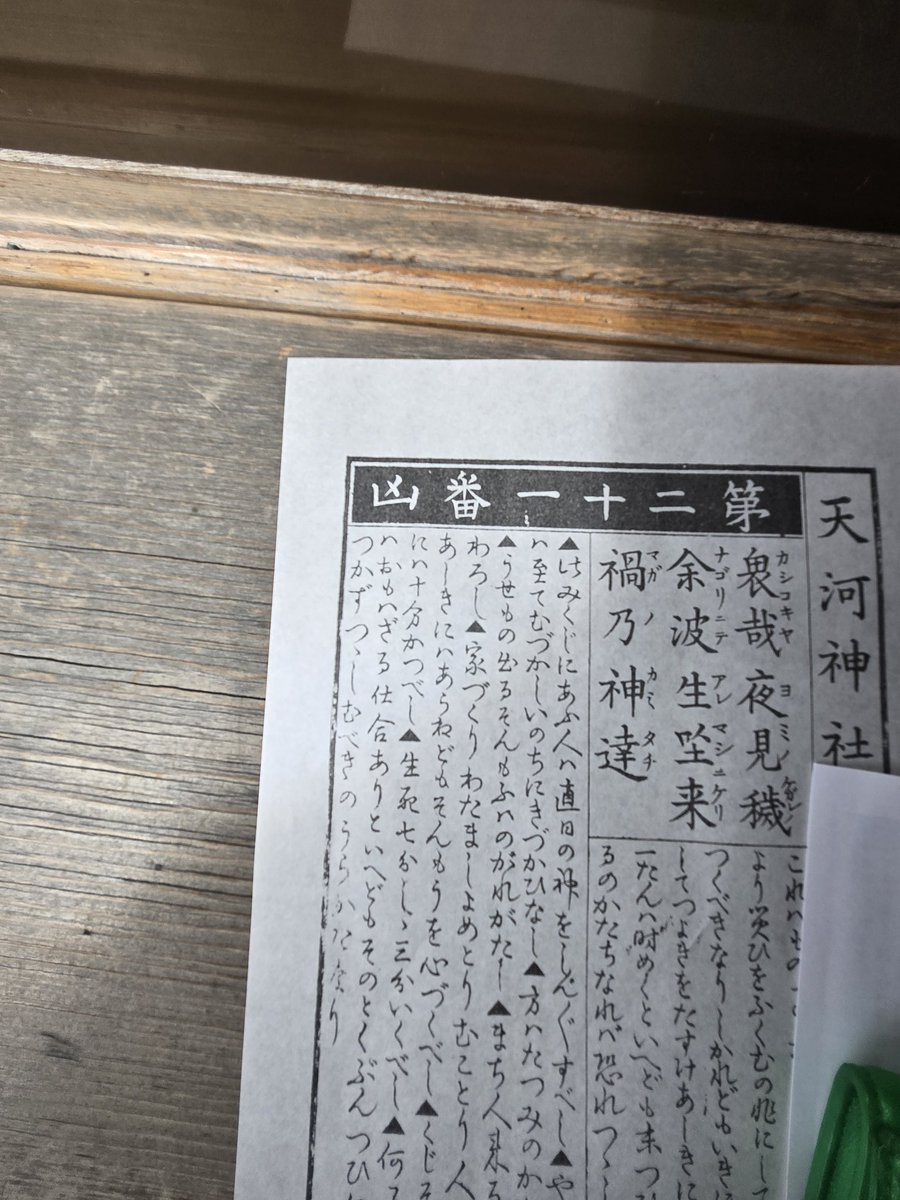 天河神社
第二十一番凶
畏哉夜見穢
カシコキヤ ヨミノ
余波生坐来
ナゴリニテ アレ マシニケリ
禍乃神達
マガノ カミ タチ
これハもの
より災ひをふくむの兆にして
つくべきなりしかれどもいき
してつよきをたすけあしきに
一たんハ時めくといへども末つ
るのかたちなれバ恐れつゝ
▲此みくじにあふ人ハ直日の神をしんぐすべし▲や
ハ至てむづかしいのちにきづかひなし▲方ハたつみのか
▲うせもの出るそんもふハのがれがたし▲まち人来る
わろし▲家づくりわたましよめとりむことり人
あしきにハあらねどもそんもうを心づくべし▲くじそ
にハ十分かつべし▲生死七分しゝ三分いくべし▲何
ハおもハざる仕合ありといへどもそのとくぶんつひ
つかずつゝしむべきのうらかたなり